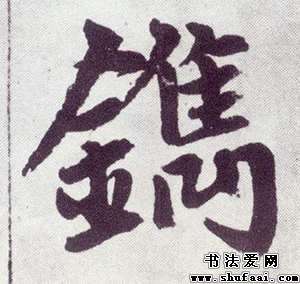 鐫
书法爱网
www.shufaai.com